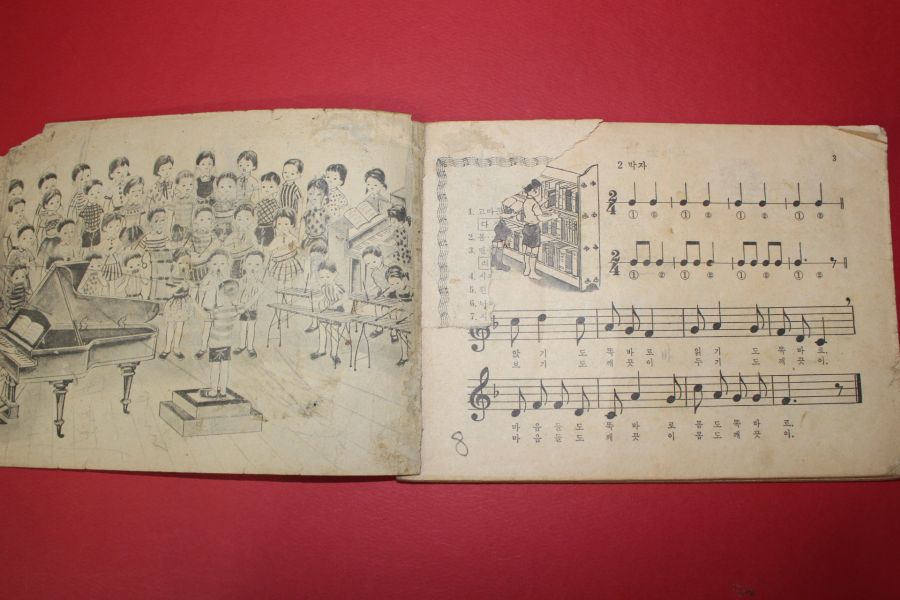 2 박자
3
2/4
① ② ① ② ① ② ① ②
2/4
① ② ① ② ① ② ① ②
1. 고마
다
2. 몸
3.
4. 시
5.
6.
7.
앉 기 도 똑 바 로 읽 기 도 똑 바 로,
보 기 도 깨 끗 이 두 기 도 깨 끗 이,
마 음 들 도 똑 바 로 몸 도 똑 바 로.
마 음 들 도 깨 끗 이 몸 도 깨 끗 이.
8